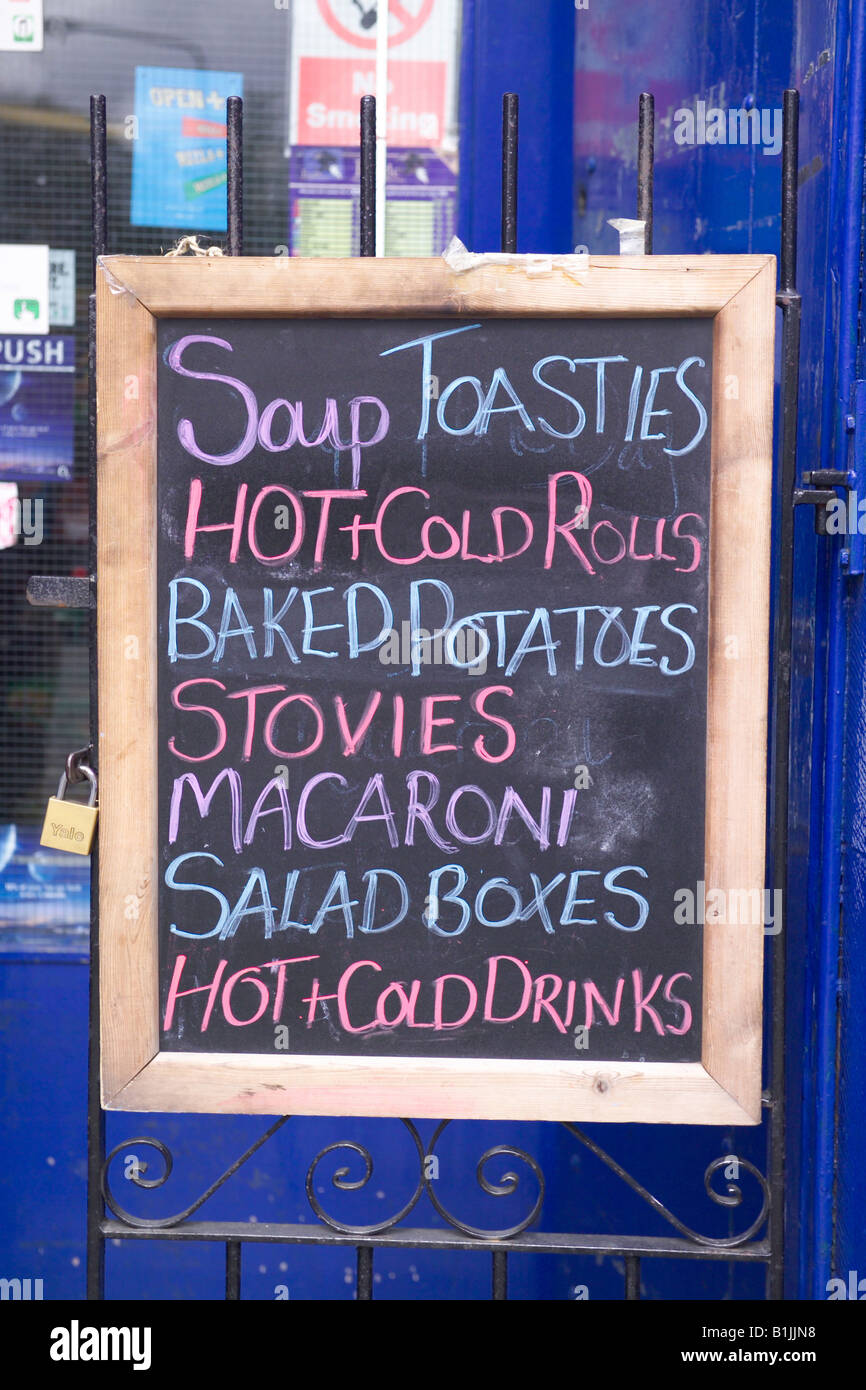 OPEN+
No
Smoking
PUSH
Soup TOASTIES
HOT+COLD ROLLS
BAKED POTATOES
STOVIES
MACARONI
Yale
SALAD BOXES
HOT+COLD DRINKS
alamy
alamy
Image ID: B1JJN8
www.alamy.com